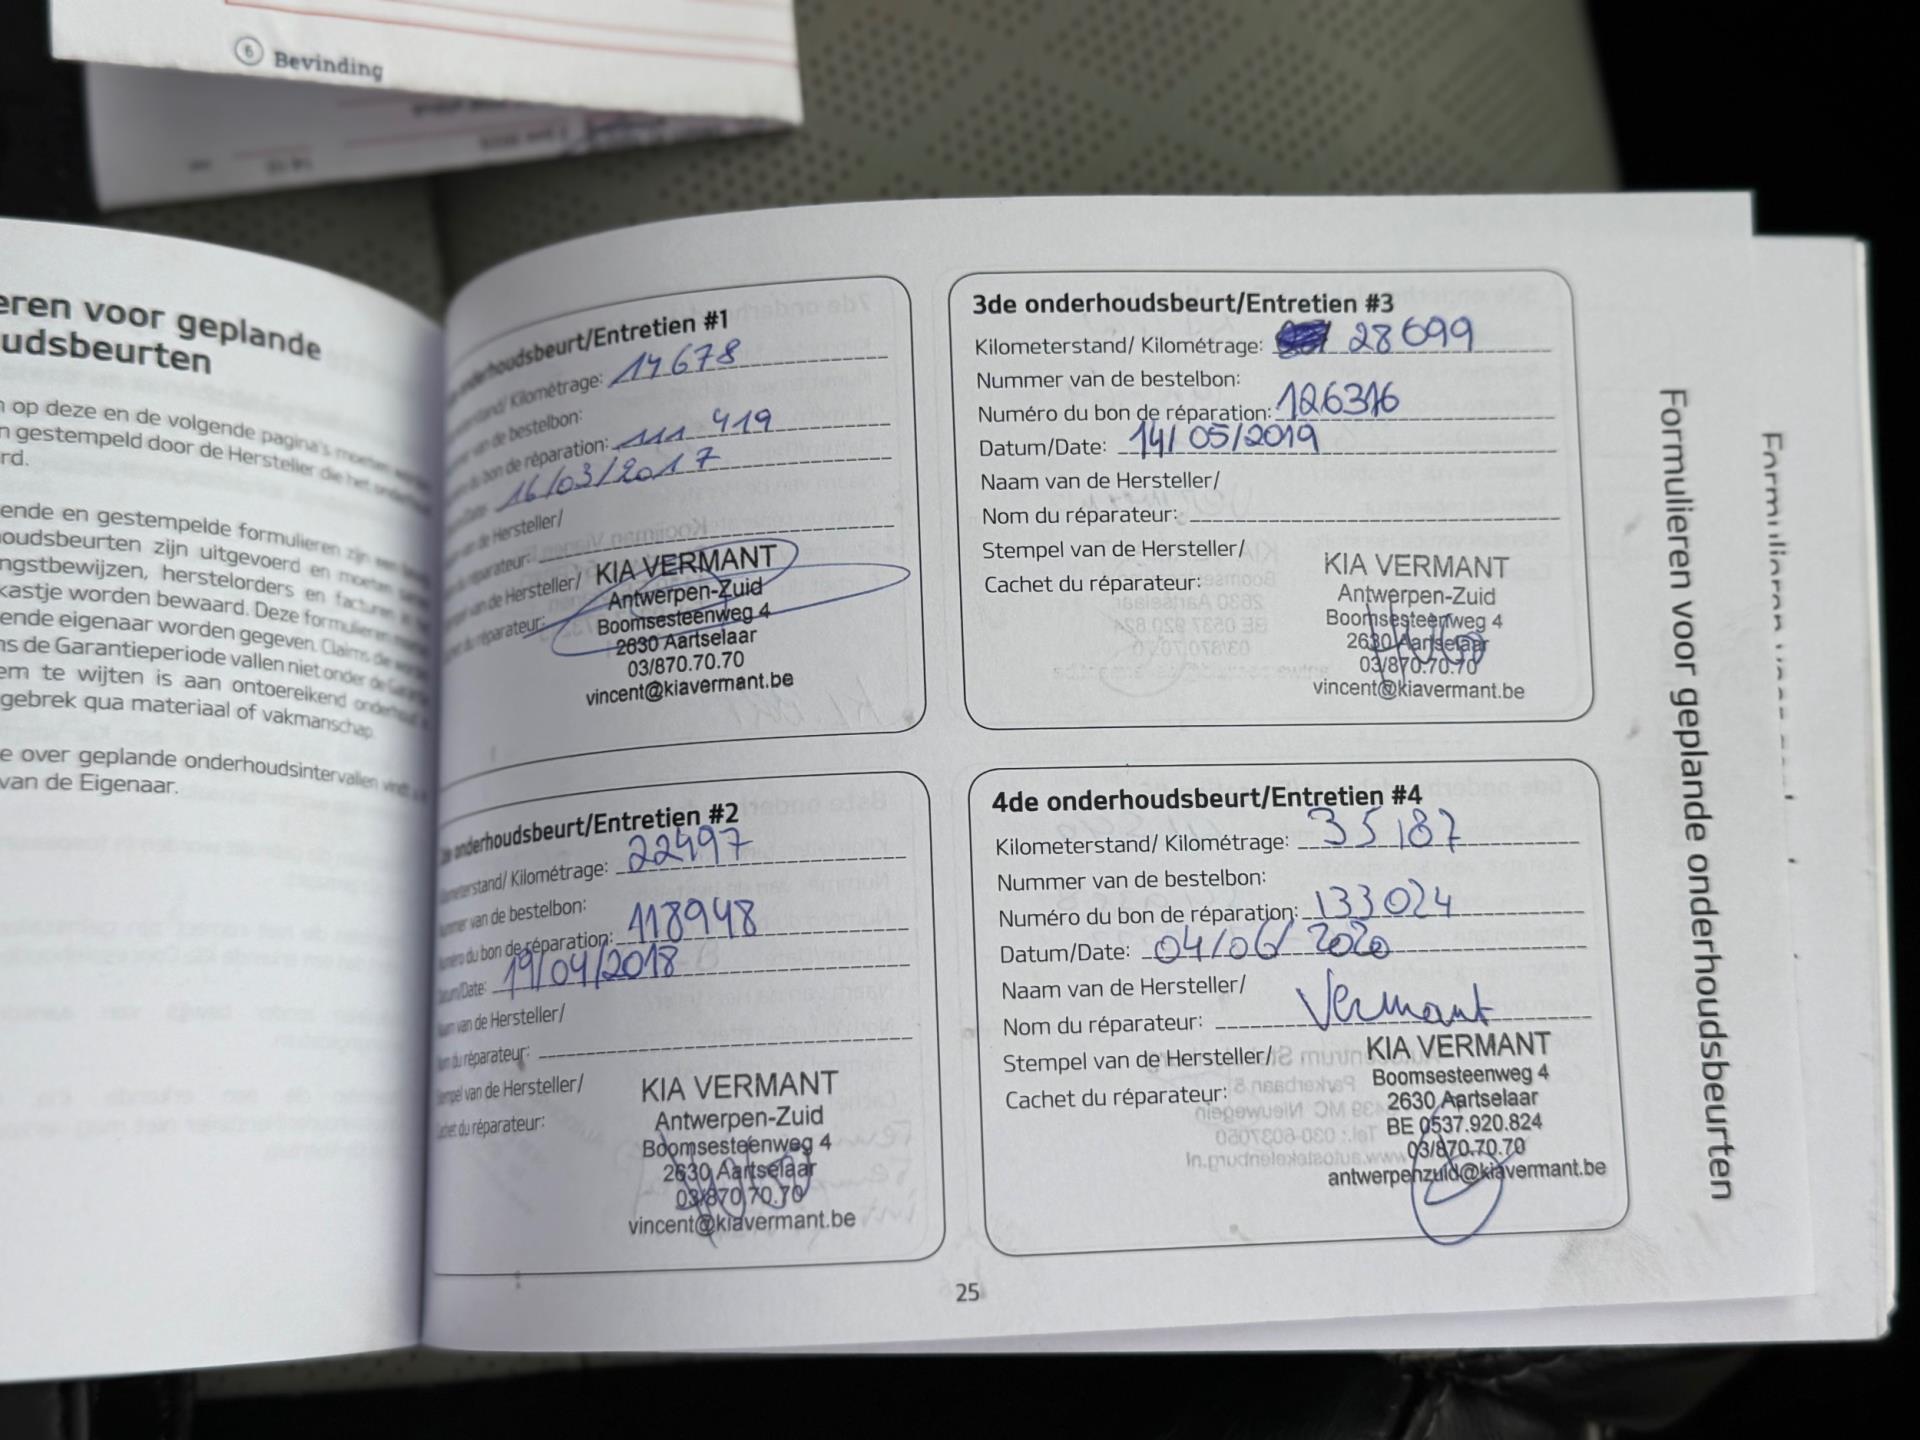 6 Bevinding
eren voor geplande
udsbeurten
op deze en de volgende pagina's moeten
n gestempeld door de Hersteller die het
rd.
ende en gestempelde formulieren zijn een
oudsbeurten zijn uitgevoerd en moeten
ngstbewijzen, herstelorders en facturen in het
kastje worden bewaard. Deze formulieren
ende eigenaar worden gegeven. Claims die
ns de Garantieperiode vallen niet onder de
em te wijten is aan ontoereikend onderhoud
gebrek qua materiaal of vakmanschap.
e over geplande onderhoudsintervallen vindt u
van de Eigenaar.
onderhoudsbeurt/Entretien #1
Kilométrage: 14678
van de bestelbon:
du bon de réparation: 111 419
16/03/2017
van de Hersteller/
du réparateur:
van de Hersteller/
du réparateur:
KIA VERMANT
Antwerpen-Zuid
Boomsesteenweg 4
2630 Aartselaar
03/870.70.70
vincent@kiavermant.be
onderhoudsbeurt/Entretien #2
Kilometerstand/ Kilométrage: 22497
Nummer van de bestelbon:
Numéro du bon de réparation: 118948
Datum/Date: 19/04/2018
Naam van de Hersteller/
Nom du réparateur:
Stempel van de Hersteller/
Cachet du réparateur:
KIA VERMANT
Antwerpen-Zuid
Boomsesteenweg 4
2630 Aartselaar
03/870.70.70
vincent@kiavermant.be
3de onderhoudsbeurt/Entretien #3
Kilometerstand/ Kilométrage: 28699
Nummer van de bestelbon:
Numéro du bon de réparation: 126316
Datum/Date: 14/05/2019
Naam van de Hersteller/
Nom du réparateur:
Stempel van de Hersteller/
Cachet du réparateur:
KIA VERMANT
Antwerpen-Zuid
Boomsesteenweg 4
2630 Aartselaar
03/870.70.70
vincent@kiavermant.be
4de onderhoudsbeurt/Entretien #4
Kilometerstand/ Kilométrage: 35187
Nummer van de bestelbon:
Numéro du bon de réparation: 133024
Datum/Date: 04/06/2020
Naam van de Hersteller/
Nom du réparateur: Vermant
Stempel van de Hersteller/
Cachet du réparateur:
KIA VERMANT
Boomsesteenweg 4
2630 Aartselaar
BE 0537.920.824
03/870.70.70
antwerpenzuid@kiavermant.be
25
Formulieren voor geplande onderhoudsbeurten